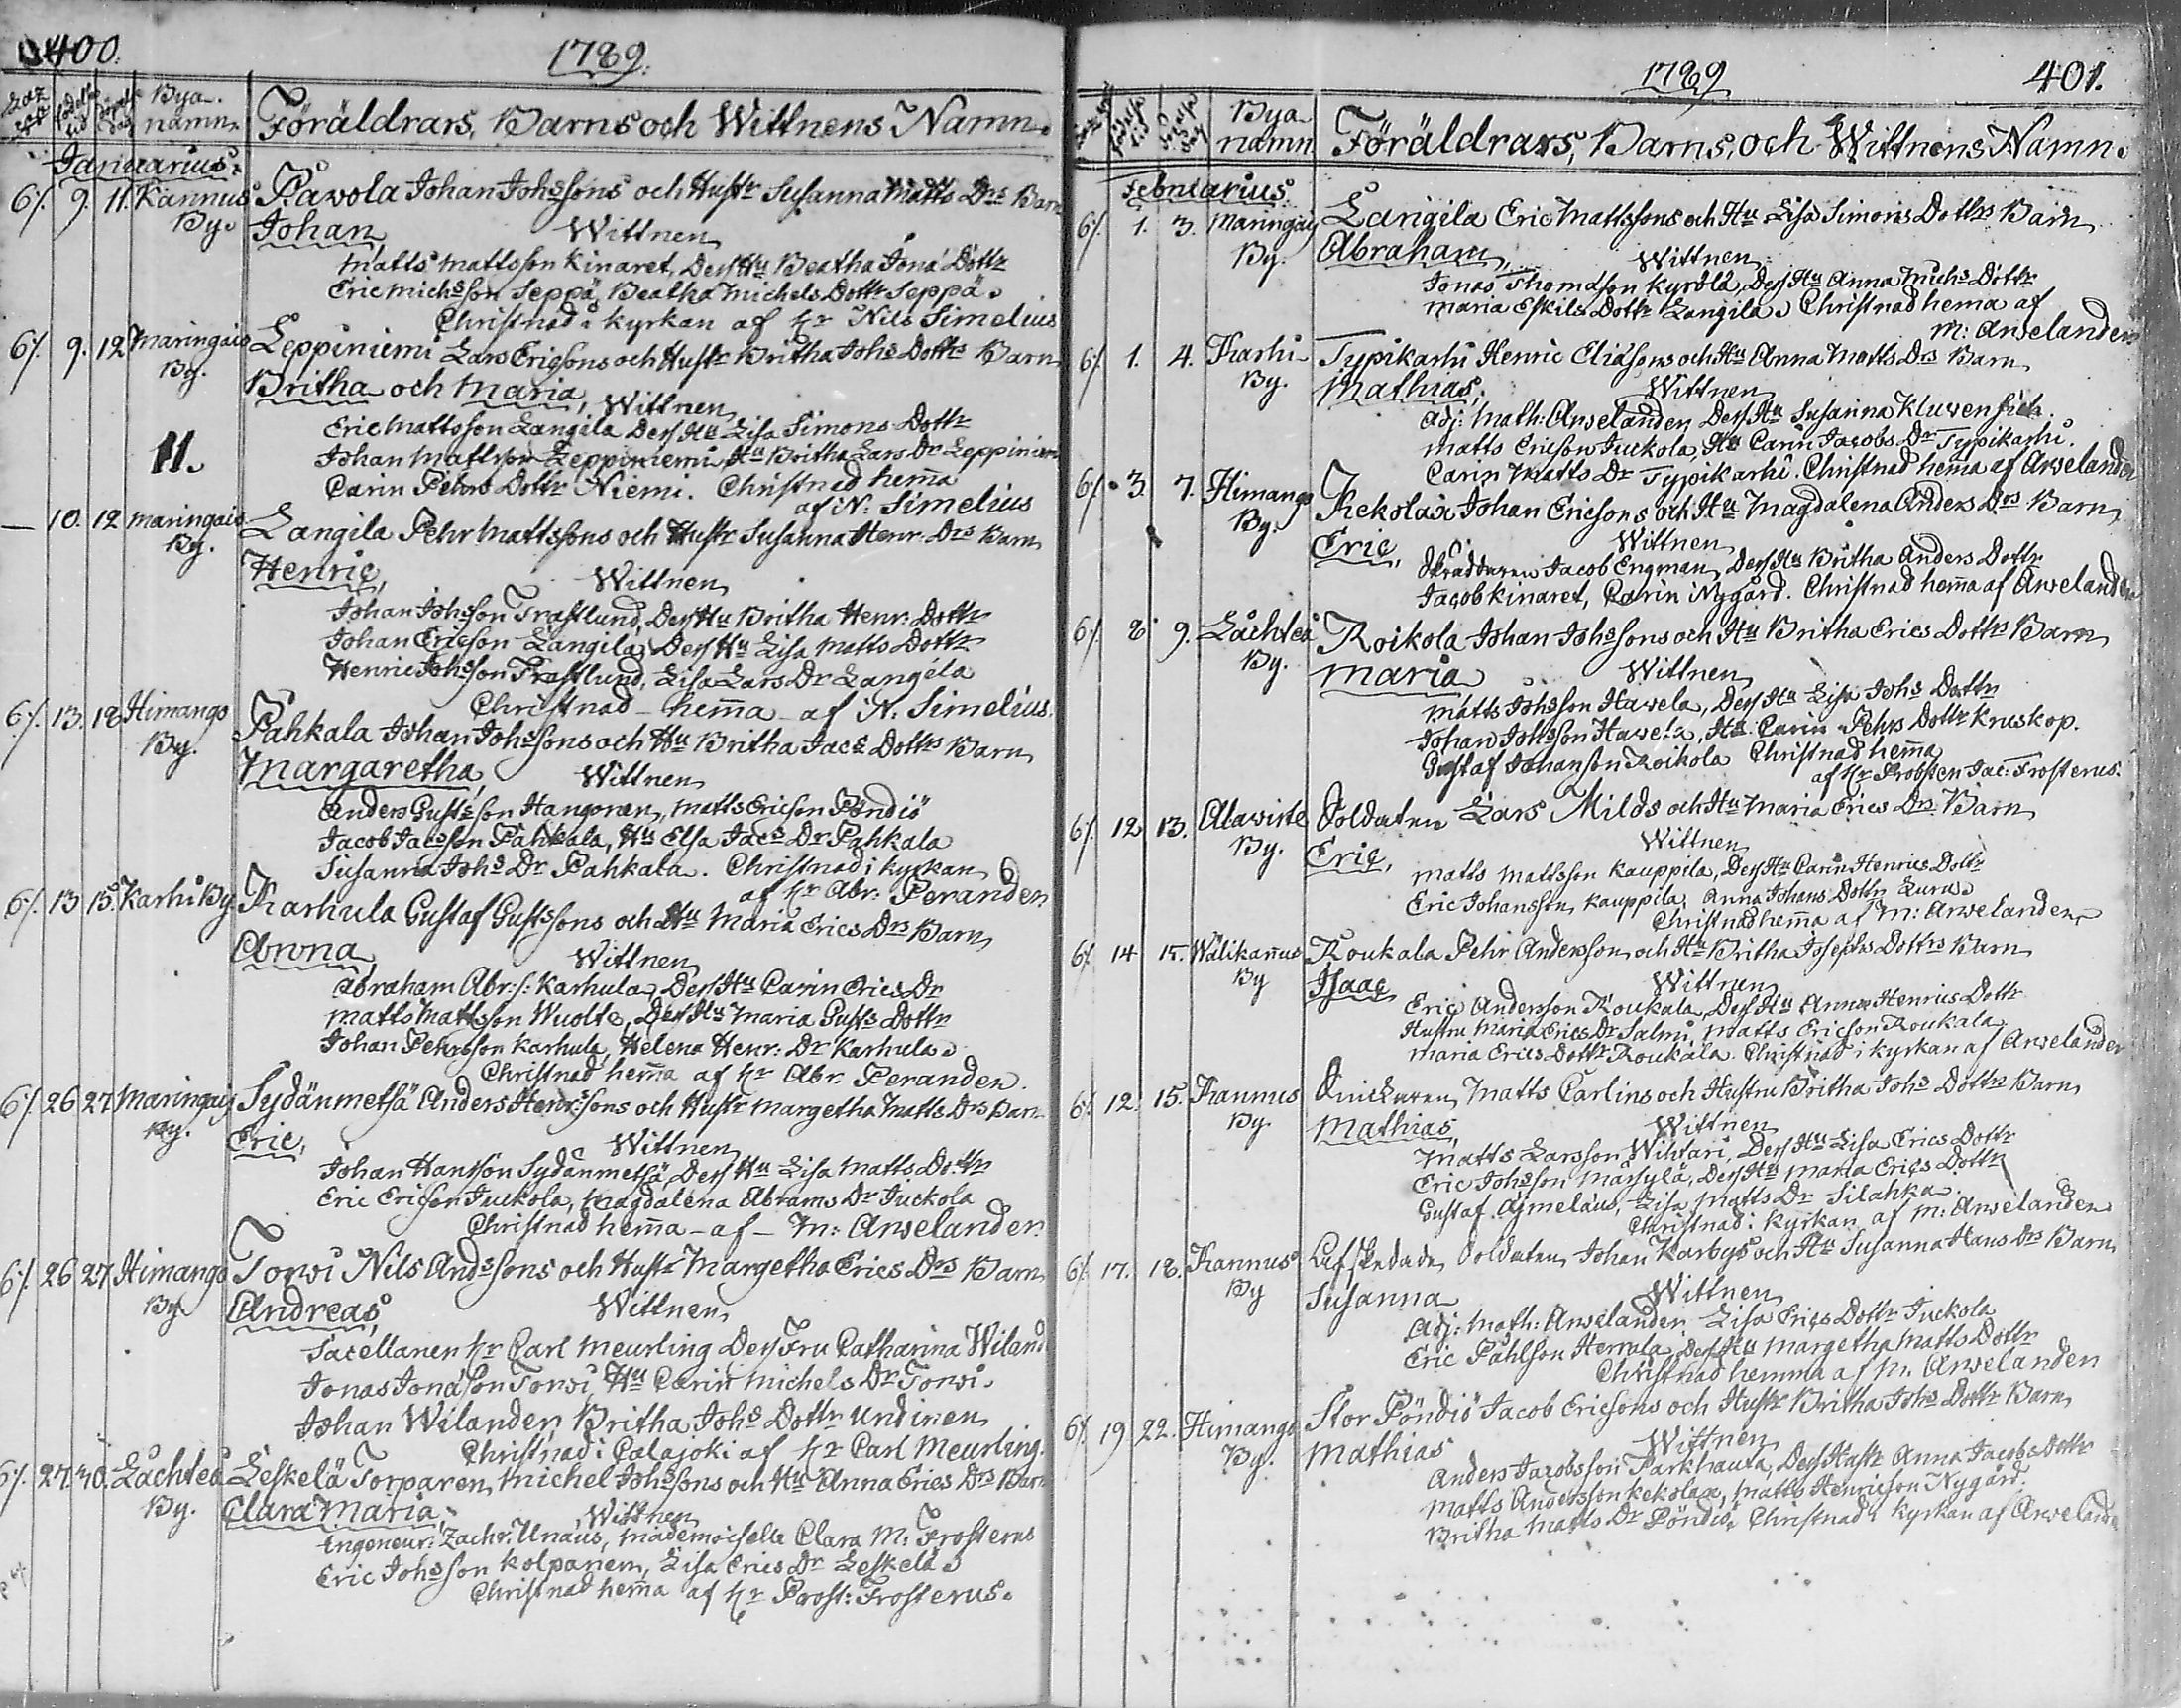 400.
1789.
Bya namn.
Föräldrars, Barns och Wittnens Namn.
Januarius.
6/. 9. 11. Kannus By. Pawola Johan Johssons och Hustr Susanna Matts Drs Barn
Johan, Wittnen
Matts Mattsson Kinaret, Dess Hu Beatha Jona Dottr
Eric Michsson Seppä, Beatha Michels Dottr Seppä.
Christnad i kyrkan af Hr Nils Simelius
6/. 9. 12 Maringais By. Leppiniemi Lars Ericsons och Hustr Britha Johs Dottrs Barn
Britha och Maria, Wittnen
Eric Mattsson Langila Dess Hu Lisa Simons Dottr
11. Johan Mattsson Leppiniemi Hu Britha Lars Dr Leppiniemi
Carin Pehrs Dottr Niemi. Christnad hem̄a
af N: Simelius
— 10. 12 Maringais By. Langila Pehr Mattssons och Hustr Susanna Henr. Drs Barn
Henric, Wittnen
Johan Johsson Frastlund, Dess Hu Britha Henr: Dottr
Johan Ericson Langila, Dess Hu Lisa Matts Dottr
Henric Johsson Frastlund, Lisa Lars Dr Langila
Christnad - hem̄a - af N: Simelius.
6/. 13. 18 Himango By. Pahkala Johan Johssons och Hu Britha Jacs Dottrs Barn
Margaretha, Wittnen
Anders Gustsson Hangoran, Matts Ericson Pöndiö
Jacob Jacsson Pahkala, Hu Elsa Jacs Dr Pahkala
Susanna Johs Dr Pahkala. Christnad i kyrkan
af Hr Abr: Peranden
6/. 13 15. Karhi By. Karhula Gustaf Gustssons och Hu Maria Erics Drs Barn
Anna Wittnen
Abraham Abr:s: Karhula, Dess Hu Carin Erics Dr
Matts Mattsson Wuolte, Dess Hu Maria Gusts Dottr
Johan Pehrsson Karhula, Helena Henr: Dr Karhula.
Christnad hem̄a af Hr Abr. Peranden.
6/. 26 27 Maringais By. Sydänmetsä Anders Henr:sons och Hustr Margetha Matts Drs Barn
Eric, Wittnen
Johan Hansson Sydänmetsä, Dess Hu Lisa Matts Dottr
Eric Ericson Juckola, Magdalena Abrams Dr Juckola
Christnad hem̄a - af - M: Arwelander.
6/. 26 27 Himango By. Torwi Nils Andssons och Hustr Margetha Erics Drs Barn
Andreas, Wittnen
Sacellanen Hr Carl Meurling Dess Fru Catharina Wiland
Jonas Jonason Torwi, Hu Carin Michels Dr Torwi.
Johan Wilander, Britha Johs Dottr Undinen
Christnad i Calajoki af Hr Carl Meurling.
6/. 27. 30. Lachteå By. Leskelä Torparen, Michel Johssons och Hu Anna Erics Drs Barn
Clara Maria, Wittnen
Ingeneur: Zachr: Unaus, Mademoiselle Clara M: Frosterus
Eric Johsson Kolpanen, Lisa Erics Dr Leskelä
Christnad hem̄a af Hr Prost: Frosterus.
1789
401.
Bya namn
Föräldrars, Barns, och Wittnens Namn.
Februarius.
6/. 1. 3. Maringais By. Langila Eric Mattssons och Hu Lisa Simons Dottrs Barn
Abraham, Wittnen
Jonas Thomasson Kyrölä, Dess Hu Anna Michs Dottr
Maria Eskils Dottr Langila. Christnad hema af
M: Arwelander
6/. 1. 4. Karhi By. Typikarhi Henric Eliasons och Hu Anna Matts Drs Barn
Mathias, Wittnen
Adj: Math: Arwelander, Dess Hu Susanna Kluwensich.
Matts Ericson Juckola, Hu Carin Jacobs Dr Typikarhi.
Carin Matts Dr Typikarhi. Christnad hema af Arwelander
6/. 3. 7. Himango By. Kekolax Johan Ericsons och Hu Magdalena Anders Drs Barn
Eric, Wittnen
Skräddaren Jacob Engman, Dess Hu Britha Anders Dottr
Jacob Kinaret, Carin Nygård. Christnad hem̄a af Arwelander
6/. 8. 9. Lachteå By. Roikola Johan Johssons och Hu Britha Erics Dottrs Barn
Maria Wittnen
Matts Johsson Hawela, Dess Hu Lisa Johs Dottr
Johan Johsson Hawela, Hu. Carin Pehrs Dottr Kruskop.
Gustaf Johanson Roikola Christnad hem̄a
af Hr Probsten Jac: Frosterus.
6/. 12 13. Alawirte By. Soldaten Lars Milds och Hu Maria Erics Drs Barn
Eric, Wittnen
Matts Mattsson Kauppila, Dess Hu Carin Henrics Dottr
Eric Johansson Kauppila, Anna Johans Dottr
Christnad hem̄a af M: Arwelander
6/. 14 15. Wälikan̄us By Roukala Pehr Andersson och Hu Britha Josephs Dottrs Barn
Isaac Wittnen
Eric Andersson Roukala, Dess Hu Anna Henrics Dottr
Hustru Maria Erics Dr Salmi, Matts Ericson Roukala
Maria Erics Dottr Roukala. Christnad i kyrkan af Arwelander
6/. 12. 15. Kannus By. Snickaren Matts Carlins och Hustru Britha Johs Dottrs Barn
Mathias, Wittnen
Matts Larsson Wihtari, Dess Hu Lisa Erics Dottr
Eric Johsson Märsylä, Dess Hu Maria Erics Dottr
Gustaf Ajmelaus, Lisa Matts Dr Silahka.
Christnad i kyrkan af M: Arwelander
6/. 17. 18. Kannus By Afskedade Soldaten Johan Karbys och Hu Susanna Hans Drs Barn
Susanna Wittnen
Adj: Math: Arwelander Lisa Erics Dottr Juckola
Eric Påhlson Herrala, Dess Hu Margetha Matts Dottr
Christnad hemma af M. Arwelander
6/. 19 22. Himango By. Stor Pöndiö Jacob Ericsons och Hustr Britha Johs Dottr Barn
Mathias Wittnen
Anders Jacobsson Parkhauta, Dess Hustr Anna Jacobs Dottr
Matts Andersson Kekolax, Matts Henricson Nygård.
Britha Matts Dr Pöndiö, Christnad i kyrkan af Arwelander